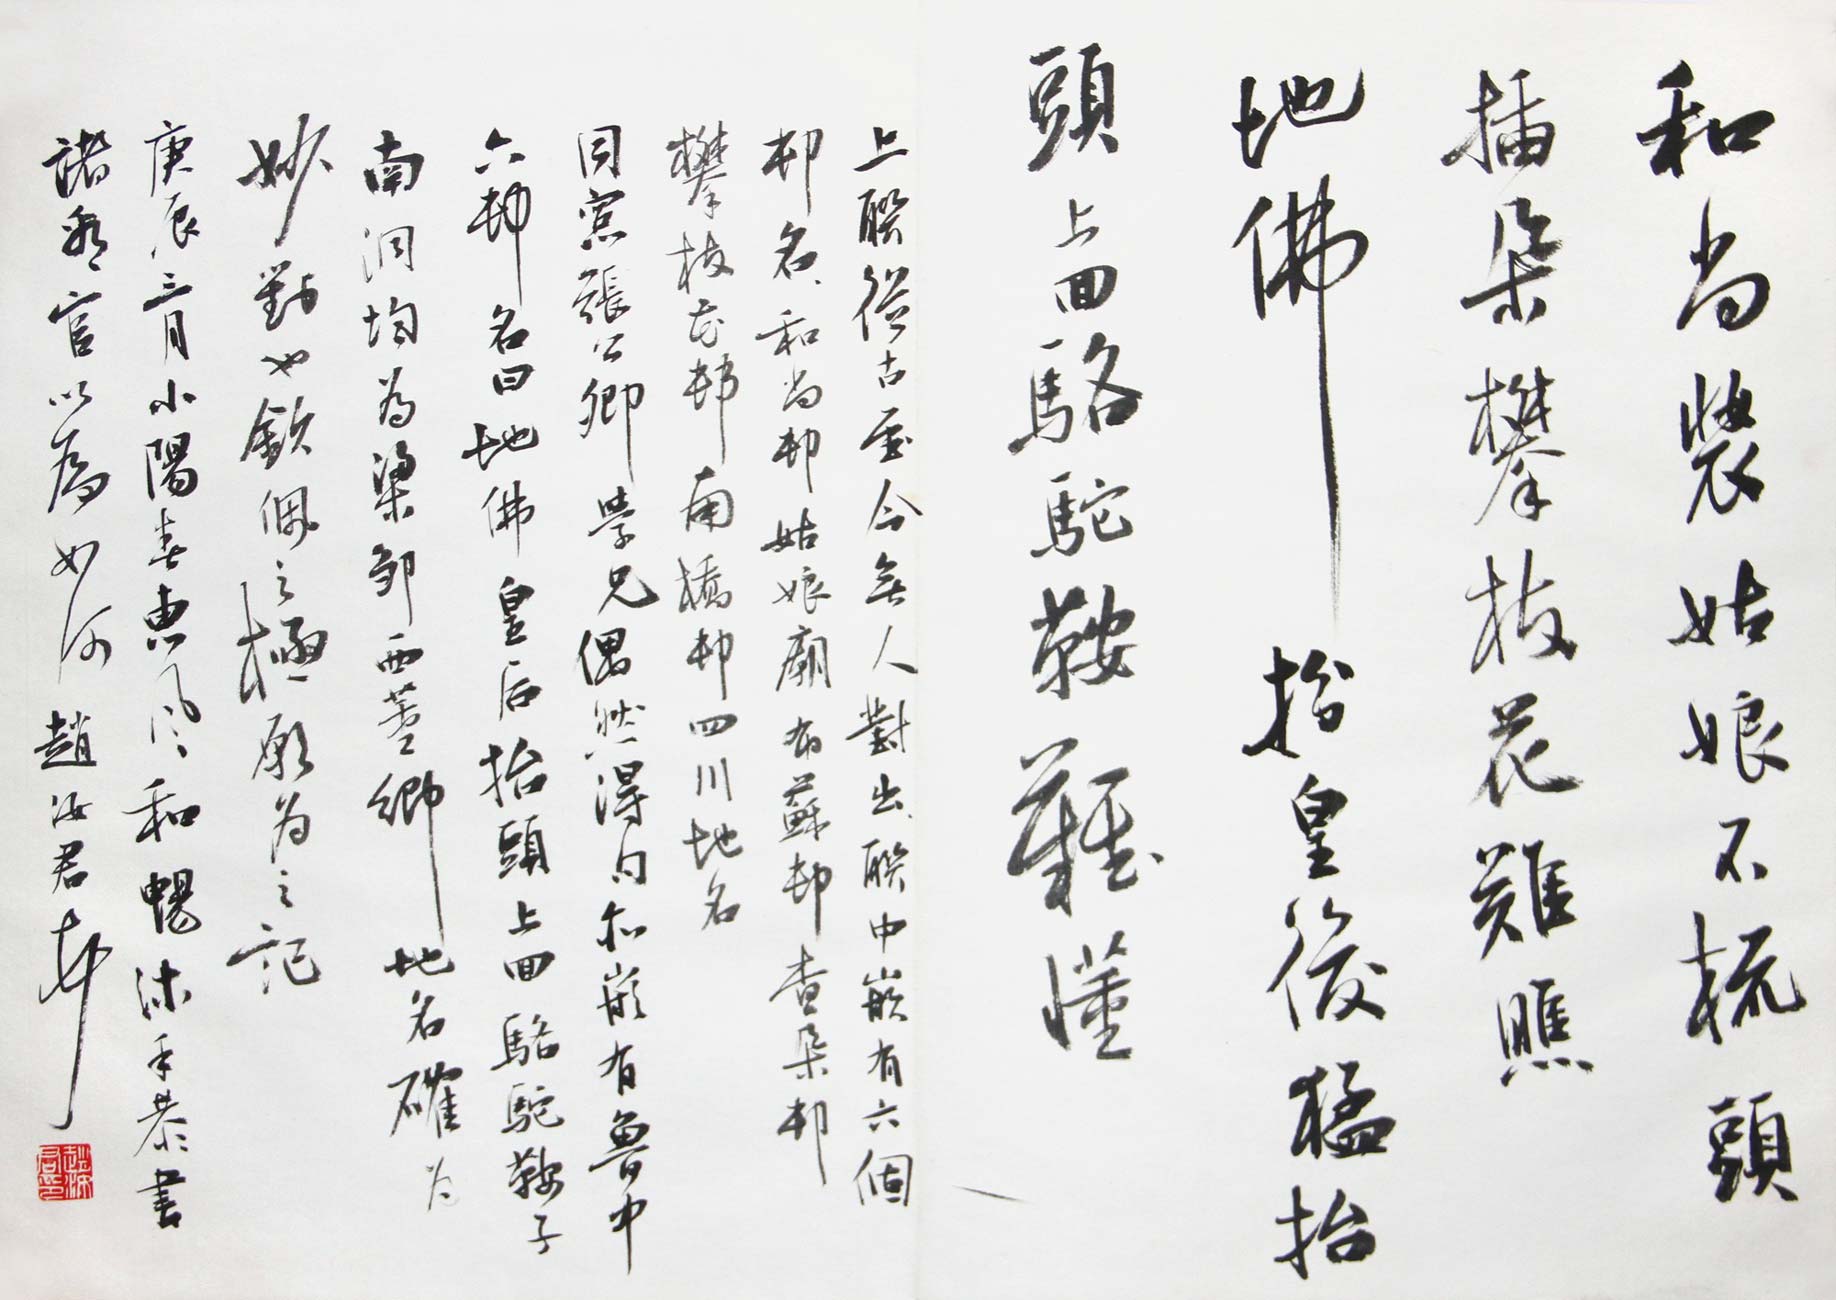 和尚裝姑娘不梳頭
插朵攀枝花難瞧
地佛扮皇後猛抬
頭上面駱駝鞍難懂
上聯從古至今無人對出聯中嵌有六個
邨名和尚邨姑娘廟有蘇邨查朵邨
攀枝花邨南橋邨四川地名
同窓張公卿學兄偶然得句亦嵌有魯中
六邨名曰地佛皇后抬頭上面駱駝鞍子
南洞均為梁鄒西董鄉地名確為
妙對也欽佩之極願為之記
庚辰三月小陽春惠风和暢沐手恭書
諸看官以為如何趙汝君